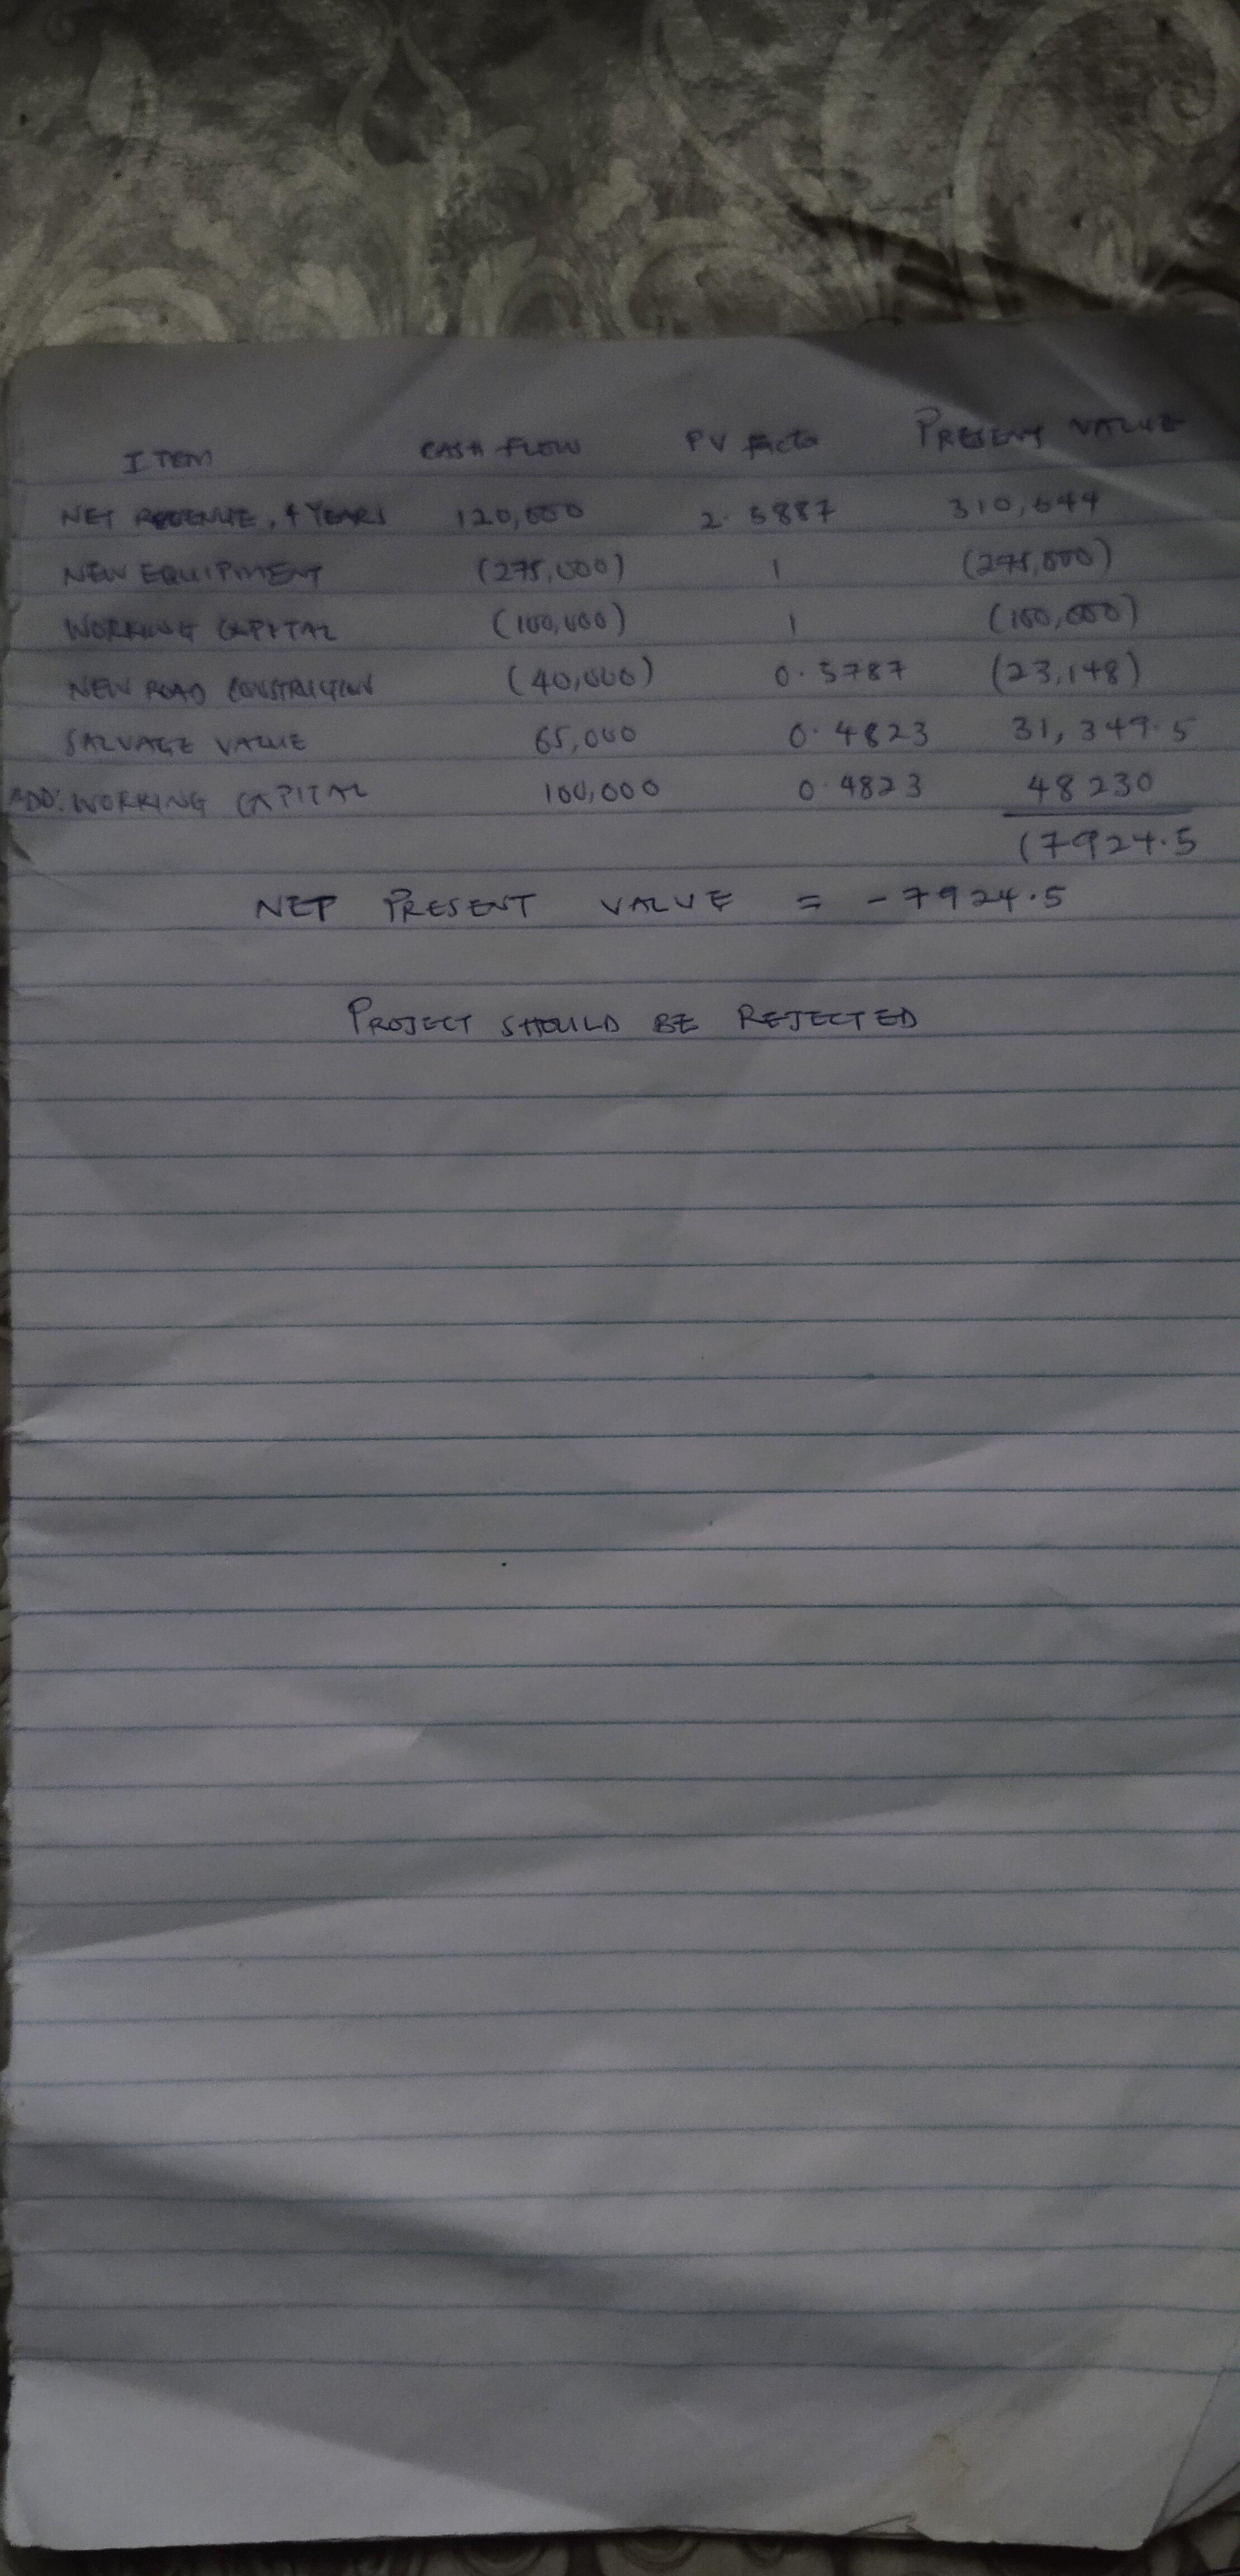 ITEM CASH FLOW PV Facto PRESENT VALUE
NET REVENUE, 4 YEARS 120,000 2.5887 310,644
NEW EQUIPMENT (275,000) 1 (275,000)
WORKING CAPITAL (100,000) 1 (100,000)
NEW ROAD CONSTRUCTION (40,000) 0.5787 (23,148)
SALVAGE VALUE 65,000 0.4823 31,349.5
ADD: WORKING CAPITAL 100,000 0.4823 48230
(7924.5
NET PRESENT VALUE = -7924.5
PROJECT SHOULD BE REJECTED